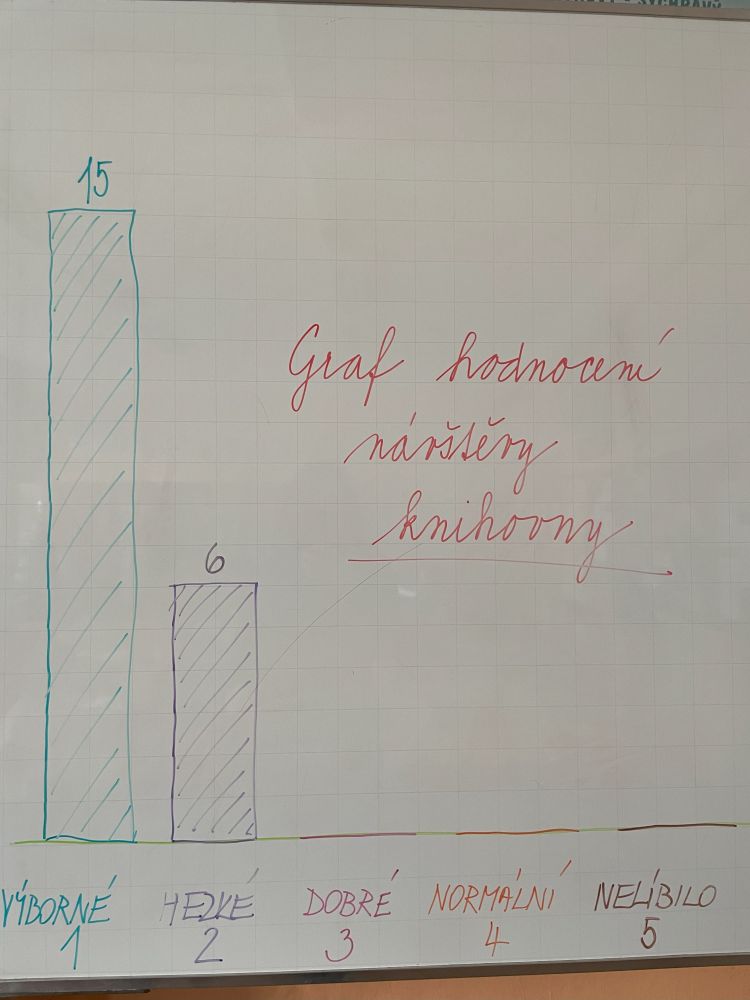 15
Graf hodnocení
návštěvy
knihovny
6
VÝBORNÉ HEZKÉ DOBRÉ NORMÁLNÍ NELÍBILO
1 2 3 4 5